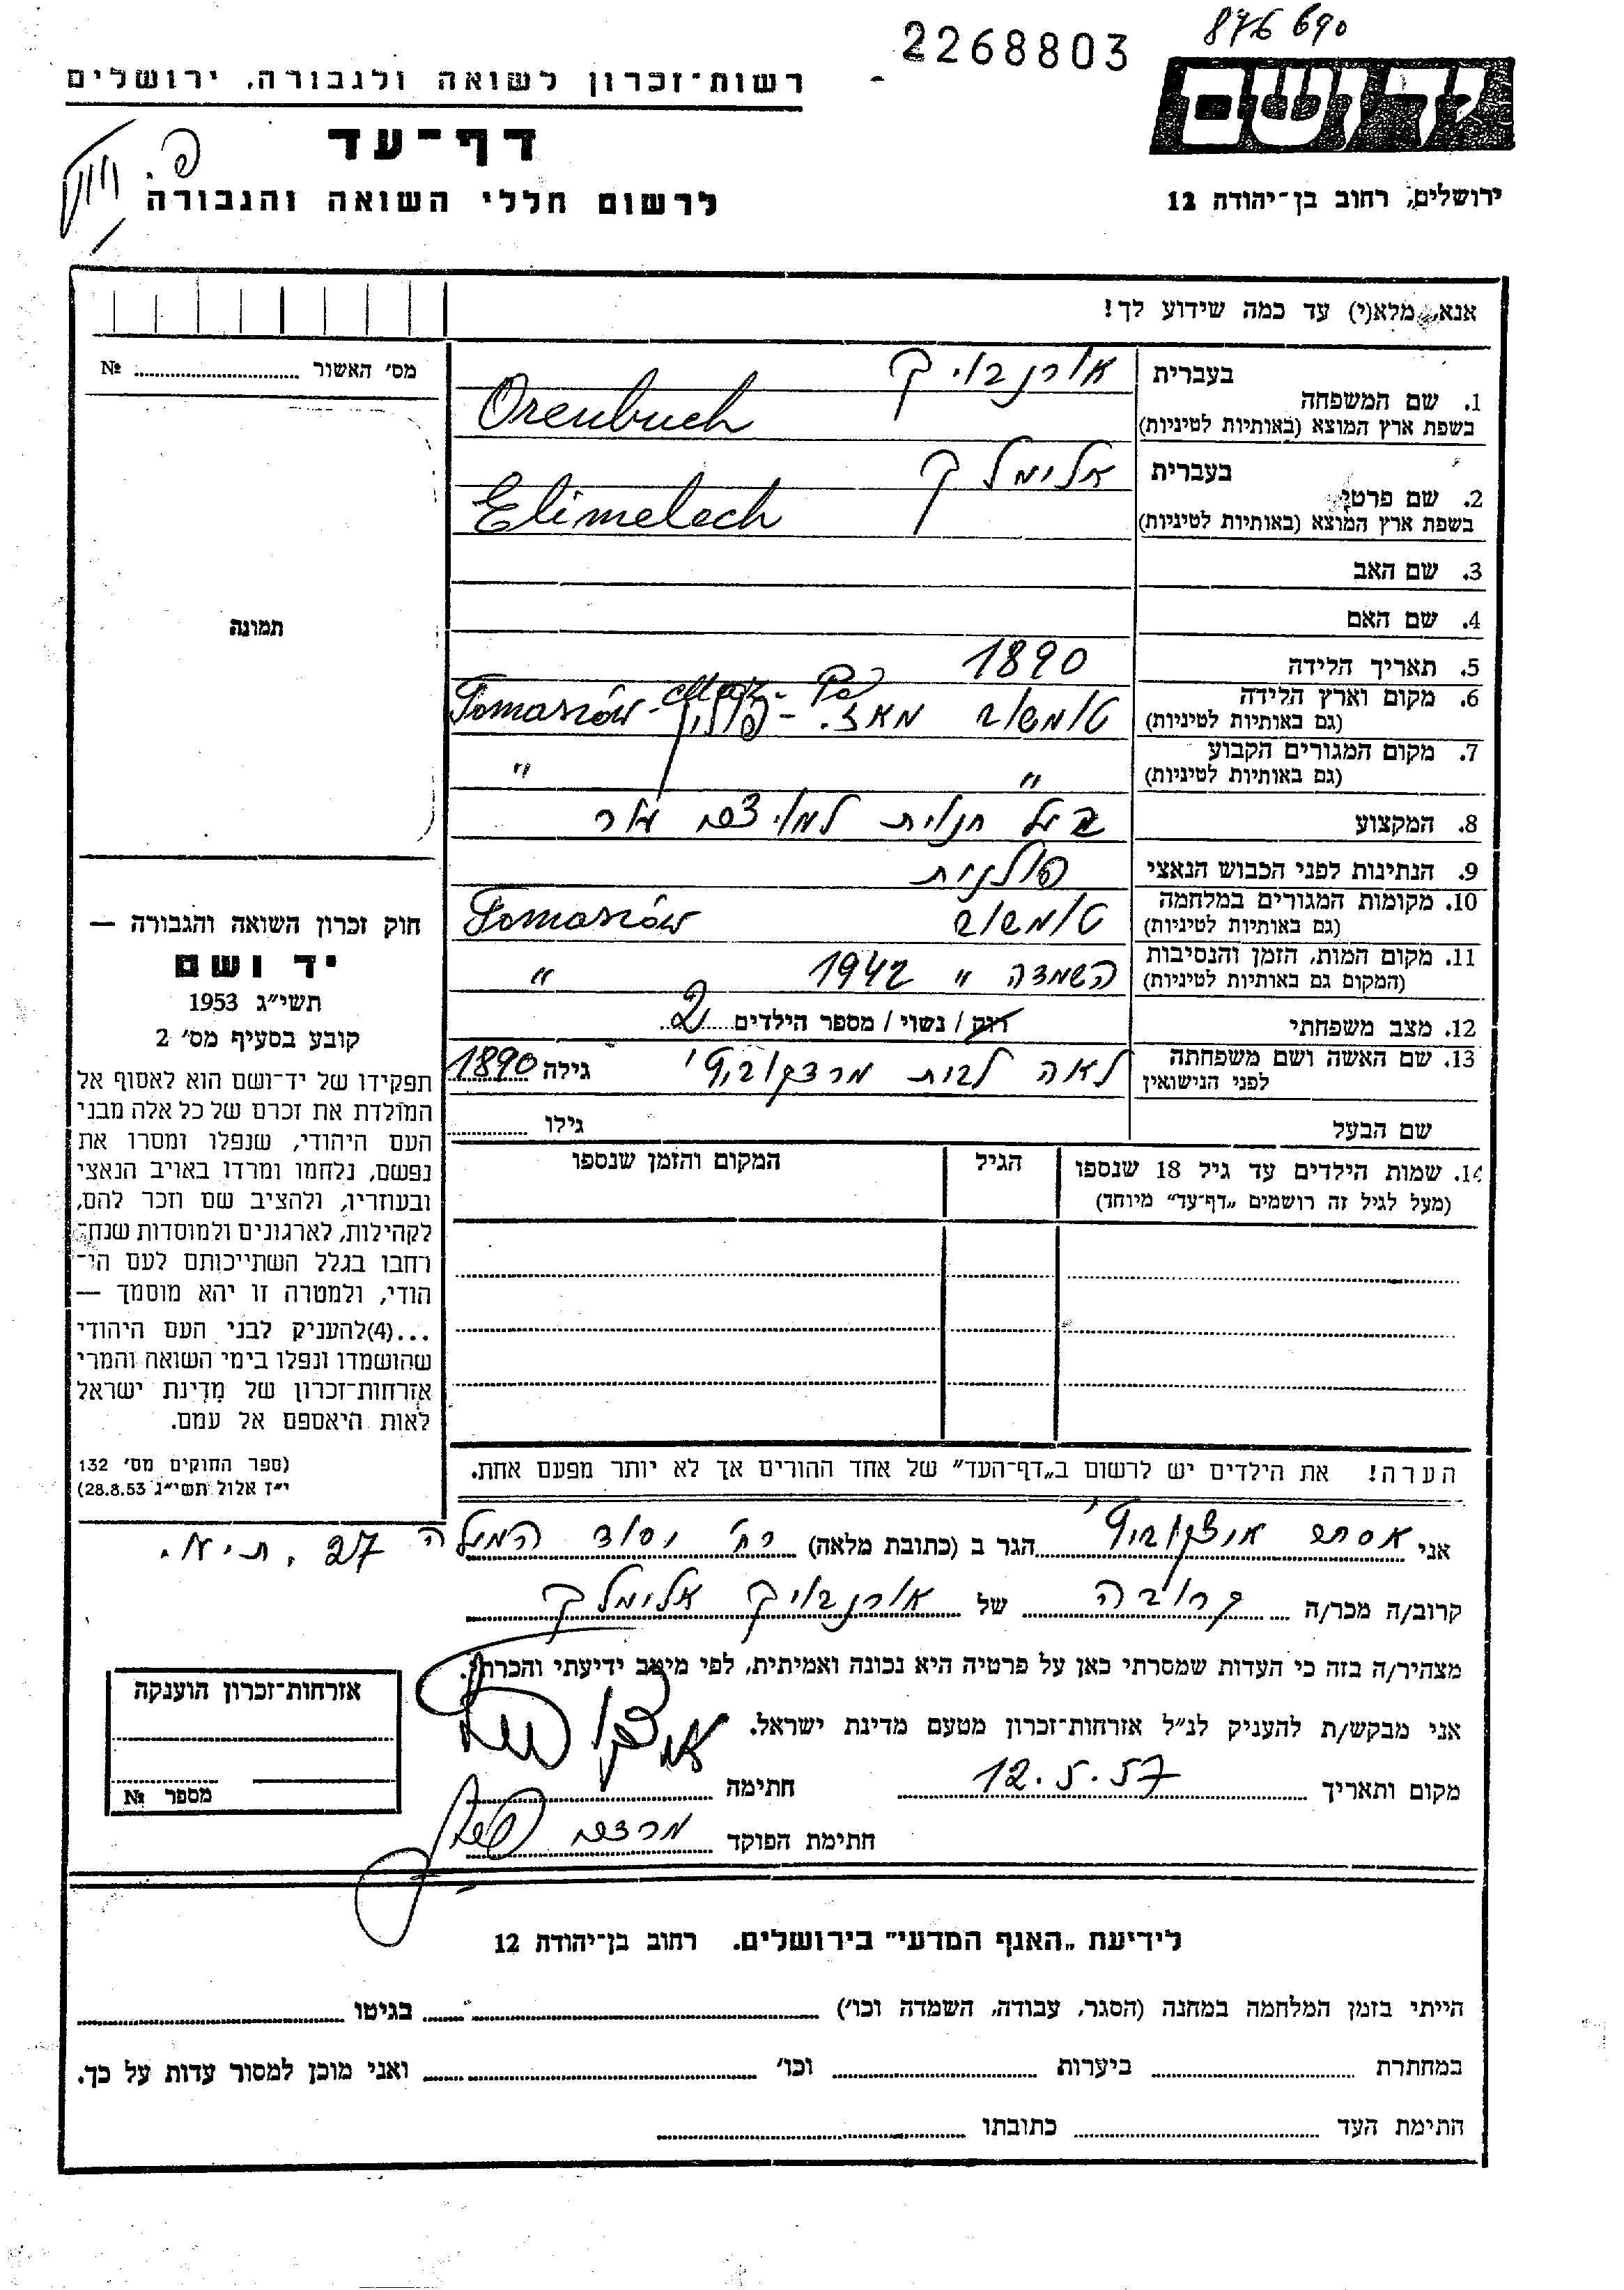 876 690
2268803
יד ושם
רשות־זכרון לשואה ולגבורה, ירושלים
דף־עד
לרשום חללי השואה והגבורה
ירושלים, רחוב בן־יהודה 12
אנא, מלא(י) עד כמה שידוע לך!
מס׳ האשור № 
בעברית אורנבויך
1. שם המשפחה
בשפת ארץ המוצא (באותיות לטיניות) Orenbuch
בעברית אלימלך
2. שם פרטי
בשפת ארץ המוצא (באותיות לטיניות) Elimelech
3. שם האב
4. שם האם
תמונה
5. תאריך הלידה 1890
6. מקום וארץ הלידה
(גם באותיות לטיניות) טומשוב מאז. - פולין Tomaszów-Maz.-
7. מקום המגורים הקבוע
(גם באותיות לטיניות) " "
8. המקצוע בעל חנות
9. הנתינות לפני הכבוש הנאצי פולנית
10. מקומות המגורים במלחמה
(גם באותיות לטיניות) טומשוב Tomaszów
11. מקום המות, הזמן והנסיבות
(המקום גם באותיות לטיניות) השמדה " 1942 "
12. מצב משפחתי רווק / נשוי / מספר הילדים 2
13. שם האשה ושם משפחתה
לפני הנישואין לאה לבית גילה 1890
שם הבעל גילו
14. שמות הילדים עד גיל 18 שנספו
(מעל לגיל זה רושמים „דף־עד” מיוחד)
הגיל
המקום והזמן שנספו
הערה! את הילדים יש לרשום ב„דף־העד” של אחד ההורים אך לא יותר מפעם אחת.
חוק זכרון השואה והגבורה —
יד ושם
תשי״ג 1953
קובע בסעיף מס׳ 2
תפקידו של יד־ושם הוא לאסוף אל
המולדת את זכרם של כל אלה מבני
העם היהודי, שנפלו ומסרו את
נפשם, נלחמו ומרדו באויב הנאצי
ובעוזריו, ולהציב שם וזכר להם,
לקהילות, לארגונים ולמוסדות שנח־
רבו בגלל השתייכותם לעם הי־
הודי, ולמטרה זו יהא מוסמך —
...(4) להעניק לבני העם היהודי
שהושמדו ונפלו בימי השואה והמרי
אזרחות־זכרון של מדינת ישראל
לאות היאספם אל עמם.
(ספר החוקים מס׳ 132
י״ז אלול תשי״ג 28.8.53)
אני אסתר הגר ב (כתובת מלאה) רח׳ יסוד המעלה 27, ת״א.
קרוב/ה מכר/ה קרובה של אורנבויך אלימלך
מצהיר/ה בזה כי העדות שמסרתי כאן על פרטיה היא נכונה ואמיתית, לפי מיטב ידיעתי והכרתי.
אני מבקש/ת להעניק לנ״ל אזרחות־זכרון מטעם מדינת ישראל.
מקום ותאריך 12.5.57 חתימה
חתימת הפוקד
אזרחות־זכרון הוענקה
מספר №
לידיעת „האגף המדעי” בירושלים. רחוב בן־יהודה 12
הייתי בזמן המלחמה במחנה (הסגר, עבודה, השמדה וכו׳) בגיטו
במחתרת ביערות וכו׳ ואני מוכן למסור עדות על כך.
חתימת העד כתובתו